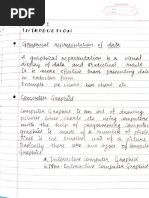 INTRODUCTION
• Graphical representation of data
A graphical representation is a visual
display of data and statistical result.
It is more effective than presenting data
in tabular form.
Example pie chart, bar chart, etc.
• Computer Graphics
Computer Graphic is an art of drawing
pictures, line, charts etc. using computers
with the help of programming. Computer
graphic is made of a number of pixel.
Pixel is smallest unit of a picture.
Basically there are two types of computer
Graphics
★ Interactive Computer Graphic
★ Non-Interactive Computer Graphic